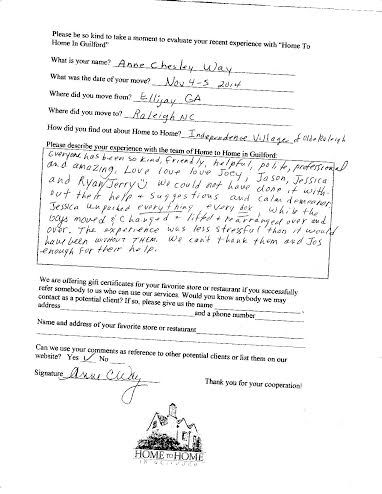 Please be so kind to take a moment to evaluate your recent experience with "Home To
Home In Guilford"
What is your name? Anne Chesley Way
What was the date of your move? Nov 4-5 2014
Where did you move from? Ellijay GA
Where did you move to? Raleigh NC
How did you find out about Home to Home? Independence Village of Olde Raleigh
Please describe your experience with the team of Home to Home in Guilford:
Everyone has been so kind, friendly, helpful, polite, professional
and amazing. Love love love Joey, Jason, Jessica
and Ryan/Jerry☺ We could not have done it with-
out their help + suggestions and calm demeanor
Jessica unpacked everything every box while the
boys moved & changed + lifted + rearranged over and
over. The experience was less stressful than it would
have been without THEM. We can't thank them and Jos
enough for their help.
We are offering gift certificates for your favorite store or restaurant if you successfully
refer somebody to us who can use our services. Would you know anybody we may
contact as a potential client? If so, please give us the name
address and a phone number
Name and address of your favorite store or restaurant
Can we use your comments as reference to other potential clients or list them on our
website? Yes ✓ No
Signature Anne
Thank you for your cooperation!
HOME TO HOME
IN GUILFORD